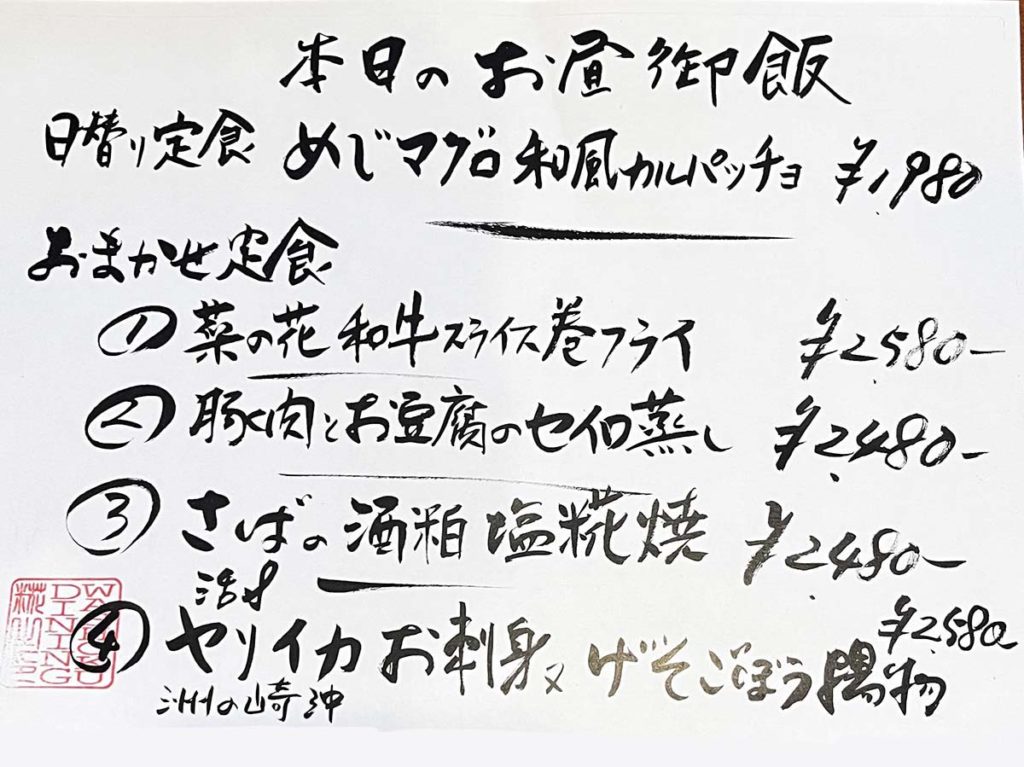 本日のお昼御飯
日替り定食 めじマグロ 和風カルパッチョ ¥1,980
おまかせ定食
① 菜の花 和牛スライス巻フライ ¥2,580-
② 豚肉とお豆腐のセイロ蒸し ¥2,480-
③ さばの酒粕塩糀焼 ¥2,480-
活〆
④ ヤリイカお刺身又げそごぼう揚物 ¥2,580
洲の崎沖
DINING